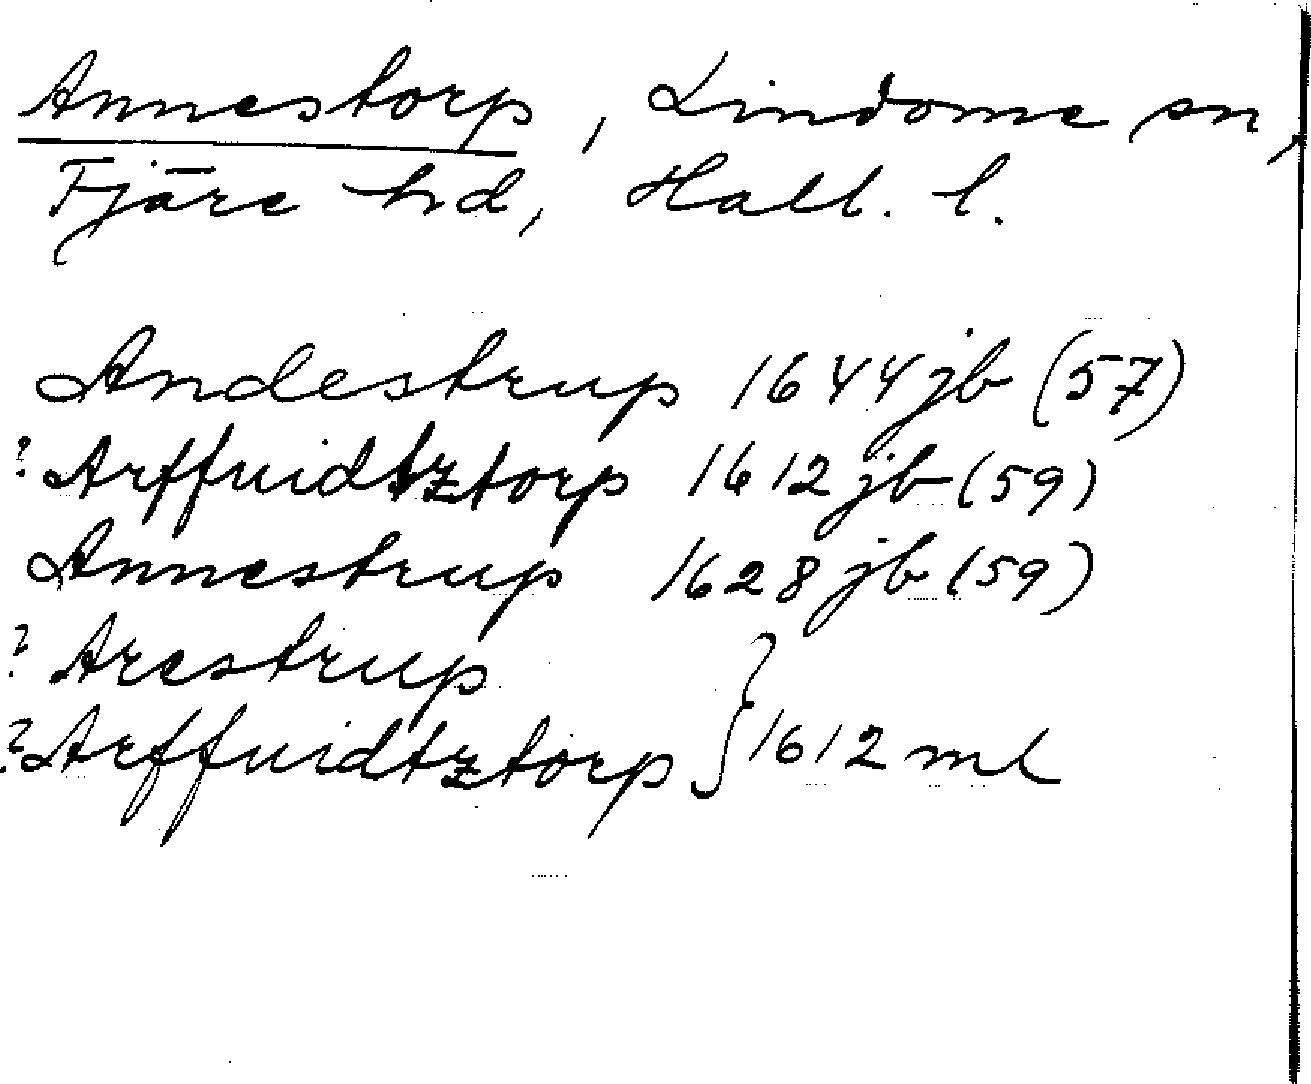 Annestorp, Lindome sn,
Fjäre hd, Hall. l.
Andestrup 1644 jb (57)
? Arffuidtztorp 1612 jb (59)
Annestrup 1628 jb (59)
? Arestrup
? Arffuidtztorp } 1612 ml